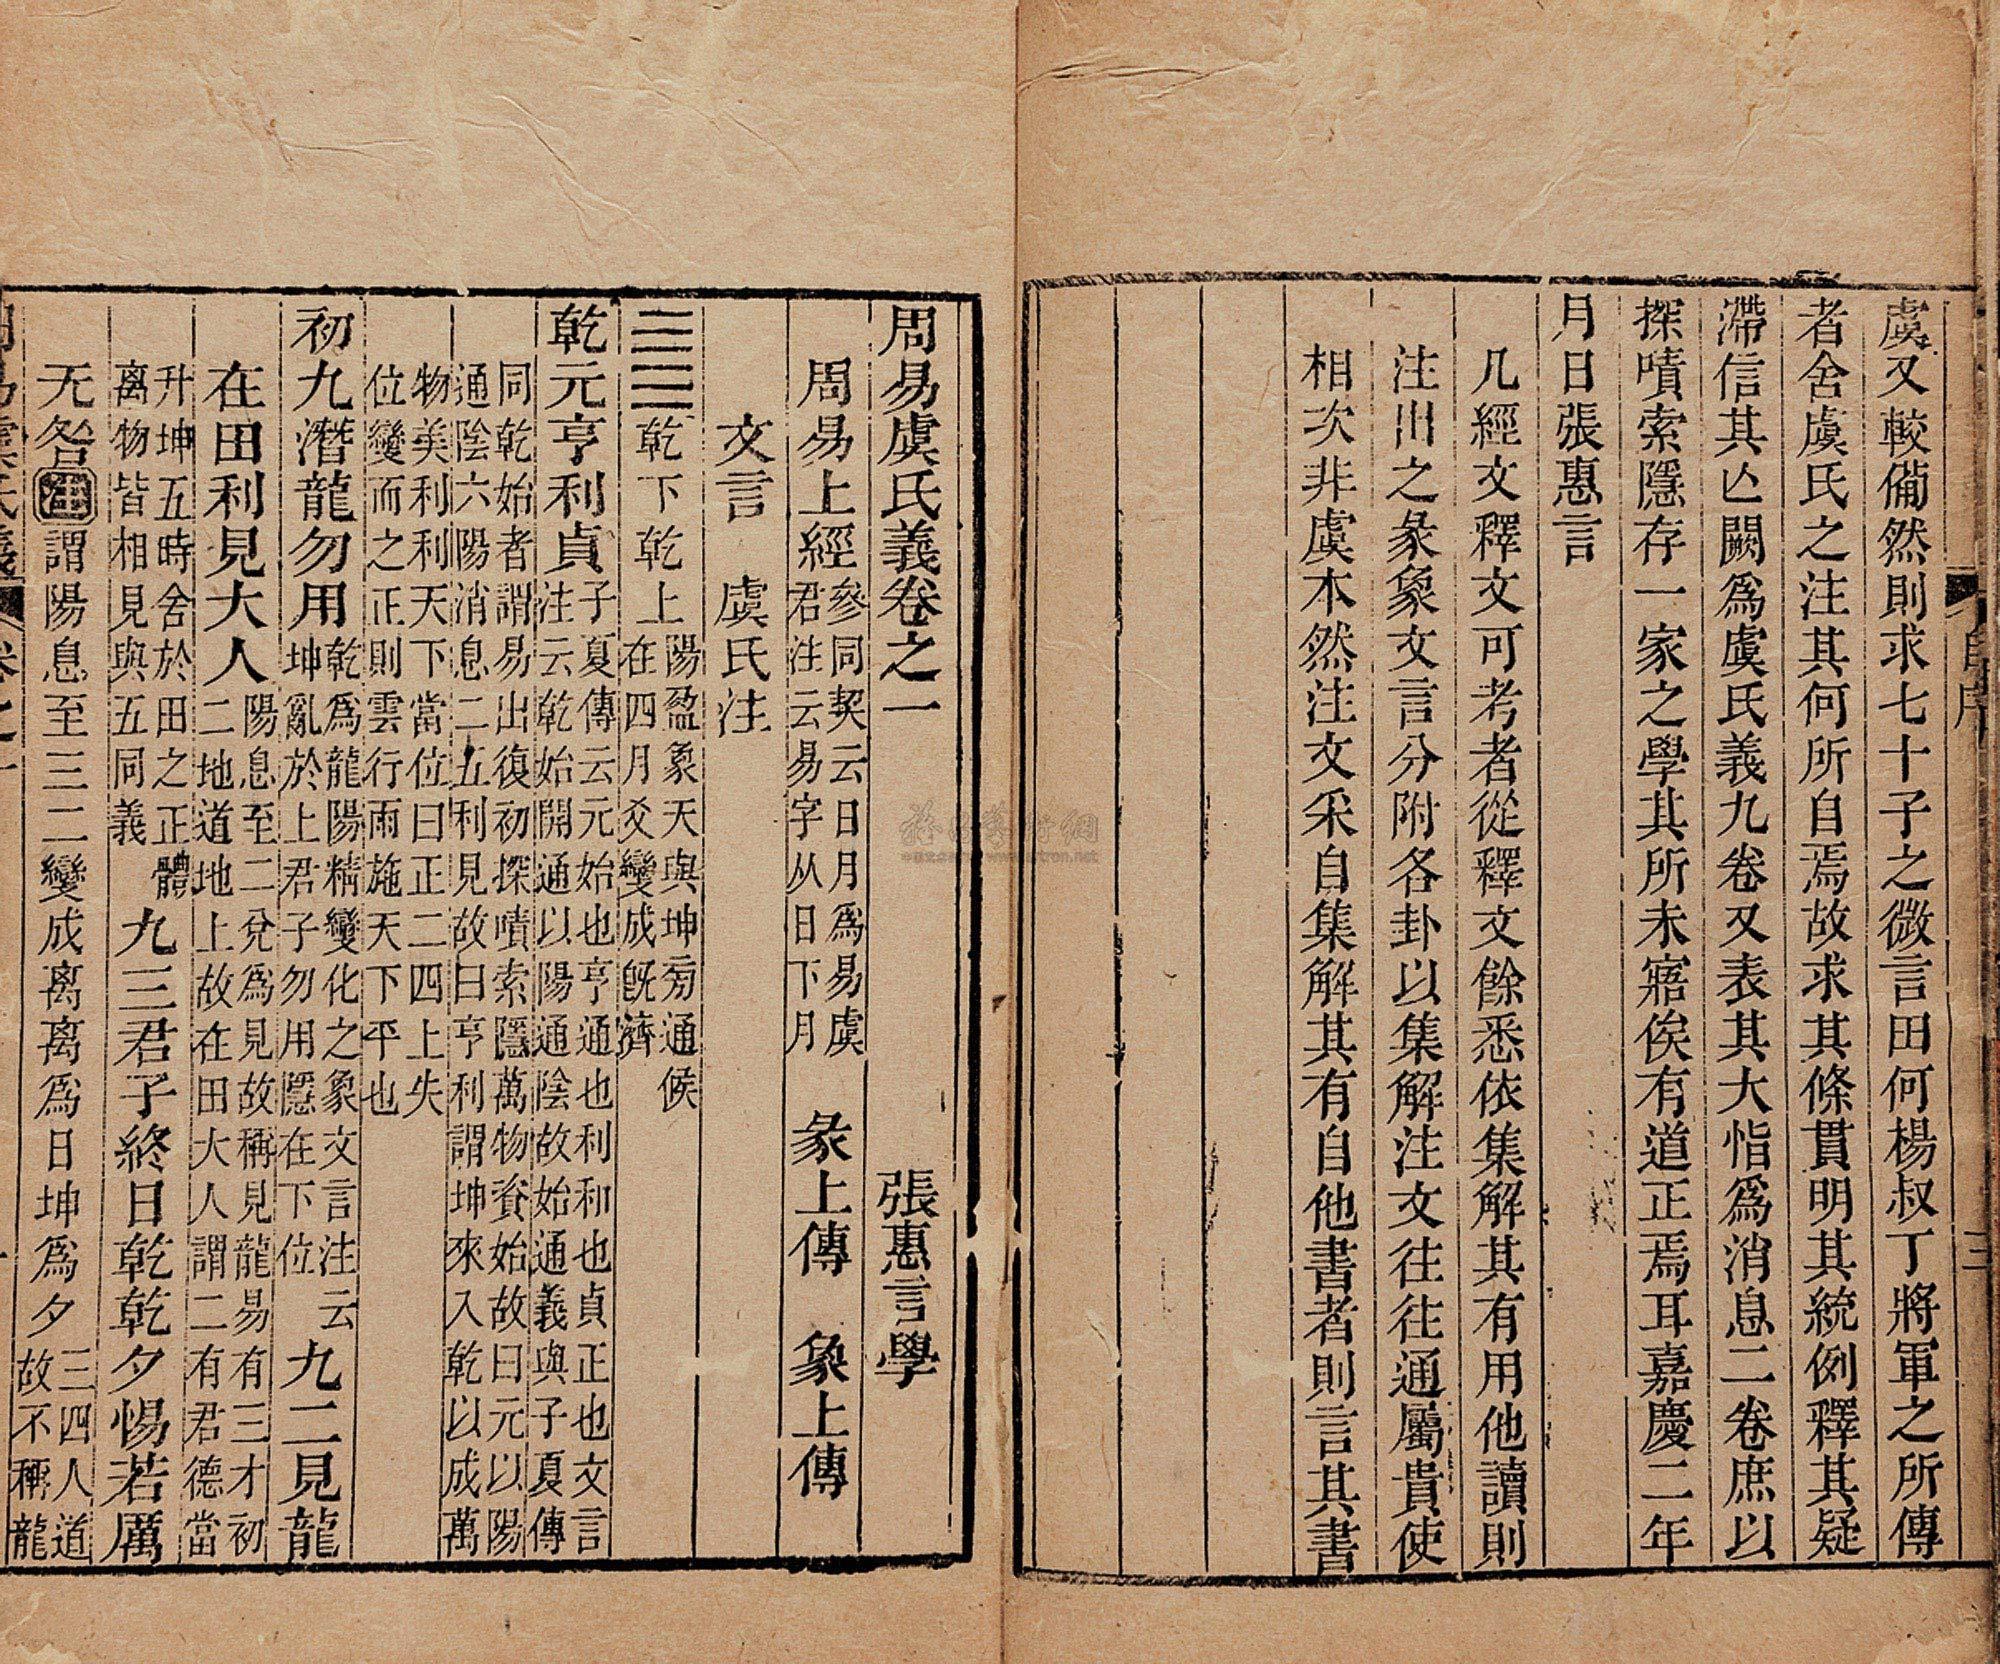 虞又較備然則求七十子之微言田何楊叔丁將軍之所傳
者舍虞氏之注其何所自焉故求其條貫明其統例釋其疑
滯信其亾闕為虞氏義九卷又表其大恉為消息二卷庶以
探嘖索隱存一家之學其所未寤俟有道正焉耳嘉慶二年
月日張惠言
凡經文釋文可考者從釋文餘悉依集解其有用他讀則
注出之彖象文言分附各卦以集解注文往往通屬貴使
相次非虞本然注文采自集解其有自他書者則言其書
自序
三
周易虞氏義卷之一 張惠言學
周易上經 參同契云日月為易虞
君注云易字从日下月 彖上傳 象上傳
文言 虞氏注
䷀乾下乾上 陽盈象天與坤旁通候
在四月爻變成旣濟
乾元亨利貞 子夏傳云元始也亨通也利和也貞正也文言
注云乾始開通以陽通陰故始通義與子夏傳
同乾始者謂易出復初探嘖索隱萬物資始故曰元以陽
通陰六陽消息二五利見故曰亨利謂坤來入乾以成萬
物美利利天下當位曰正二四上失
位變而之正則雲行雨施天下平也
初九潛龍勿用 乾為龍陽精變化之象文言注云
坤亂於上君子勿用隱在下位 九二見龍
在田利見大人 陽息至二兌為見故稱見龍易有三才初
二地道地上故在田大人謂二有君德當
升坤五時舍於田之正體
離物皆相見與五同義 九三君子終日乾乾夕惕若厲
无咎 注 謂陽息至三二變成离离為日坤為夕 三四人道
故不稱龍
周易虞氏義 卷之一 一